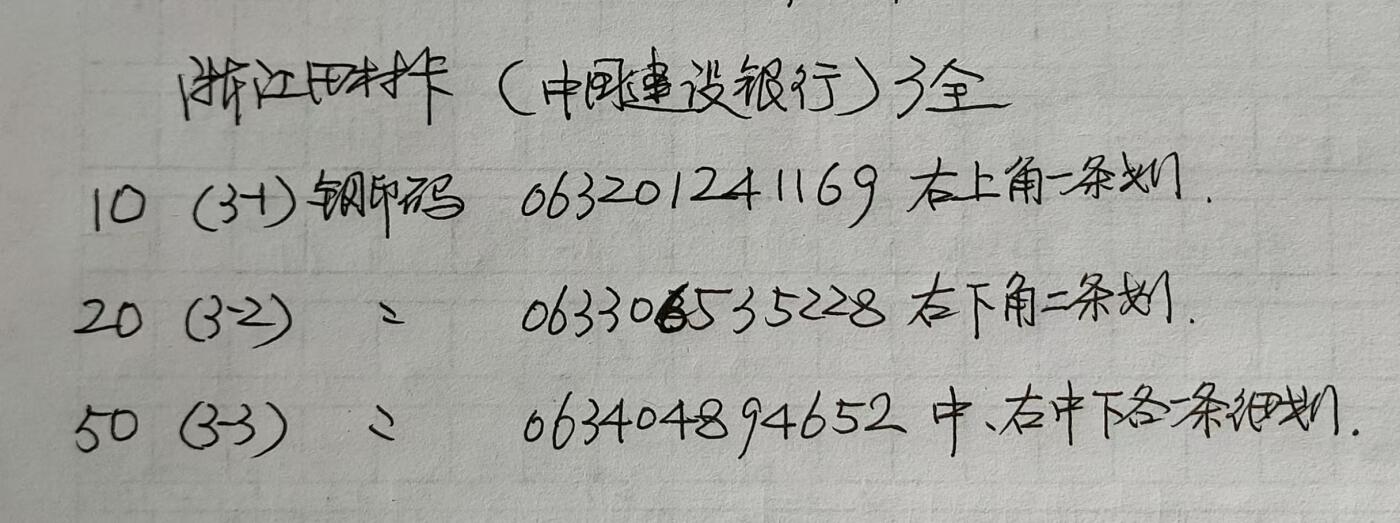 浙江田村卡（中国建设银行）3全
10 (3-1) 钢印码 063201241169 右上角一条划.
20 (3-2) 〃 063306535228 右下角二条划.
50 (3-3) 〃 063404894652 中、右中下各一条细划.